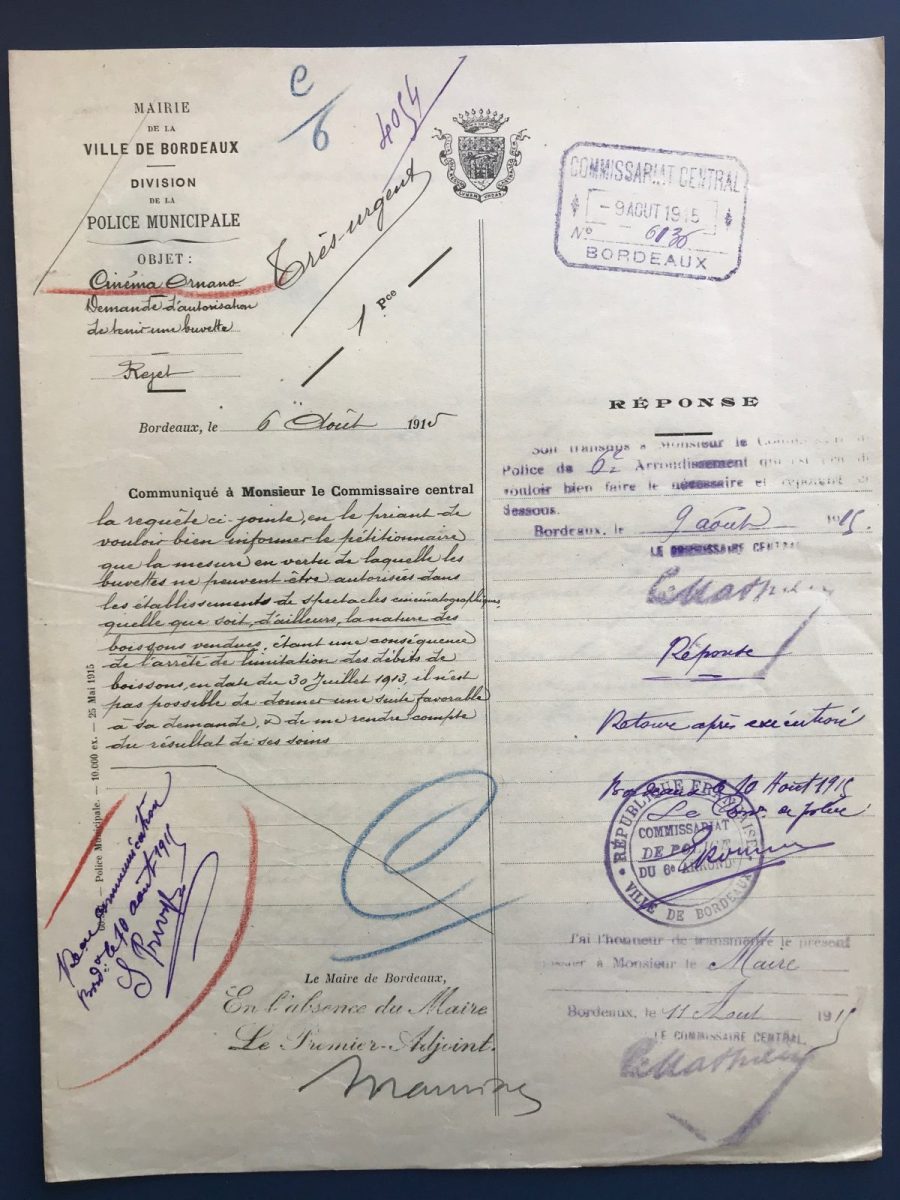 MAIRIE
DE LA
VILLE DE BORDEAUX
DIVISION
DE LA
POLICE MUNICIPALE
OBJET :
Cinéma Ornano
Demande d'autorisation
de tenir une buvette
Rejet
e/6
4054
Très-urgent
1 Pce
Bordeaux, le 6 Août 1915
Communiqué à Monsieur le Commissaire central
la requête ci-jointe, en le priant de
vouloir bien informer le pétitionnaire
que la mesure en vertu de laquelle les
buvettes ne peuvent être autorisées dans
les établissements de spectacles cinématographiques,
quelle que soit, d'ailleurs, la nature des
boissons vendues, étant une conséquence
de l'arrêté de limitation des débits de
boissons, en date du 30 Juillet 1913, il n'est
pas possible de donner une suite favorable
à sa demande, & de me rendre compte
du résultat de ses soins
Police Municipale. — 10.000 ex. — 25 Mai 1915
communication
le 10 août 1915
Le Maire de Bordeaux,
En l'absence du Maire
Le Premier-Adjoint.
COMMISSARIAT CENTRAL
- 9 AOUT 1915
No
BORDEAUX
RÉPONSE
Soit transmis à Monsieur le Commissaire de
Police du 6e Arrondissement qui est prié de
vouloir bien faire le nécessaire et répondre ci-
dessous.
Bordeaux, le 9 août 1915.
LE COMMISSAIRE CENTRAL
Réponse
Retour après exécution
Bordeaux le 10 Août 1915
Le Com. de police
RÉPUBLIQUE FRANÇAISE
COMMISSARIAT
DE POLICE
DU 6e ARRONDt
VILLE DE BORDEAUX
J'ai l'honneur de transmettre le présent
dossier à Monsieur le Maire
Bordeaux, le 11 Août 1915
LE COMMISSAIRE CENTRAL.